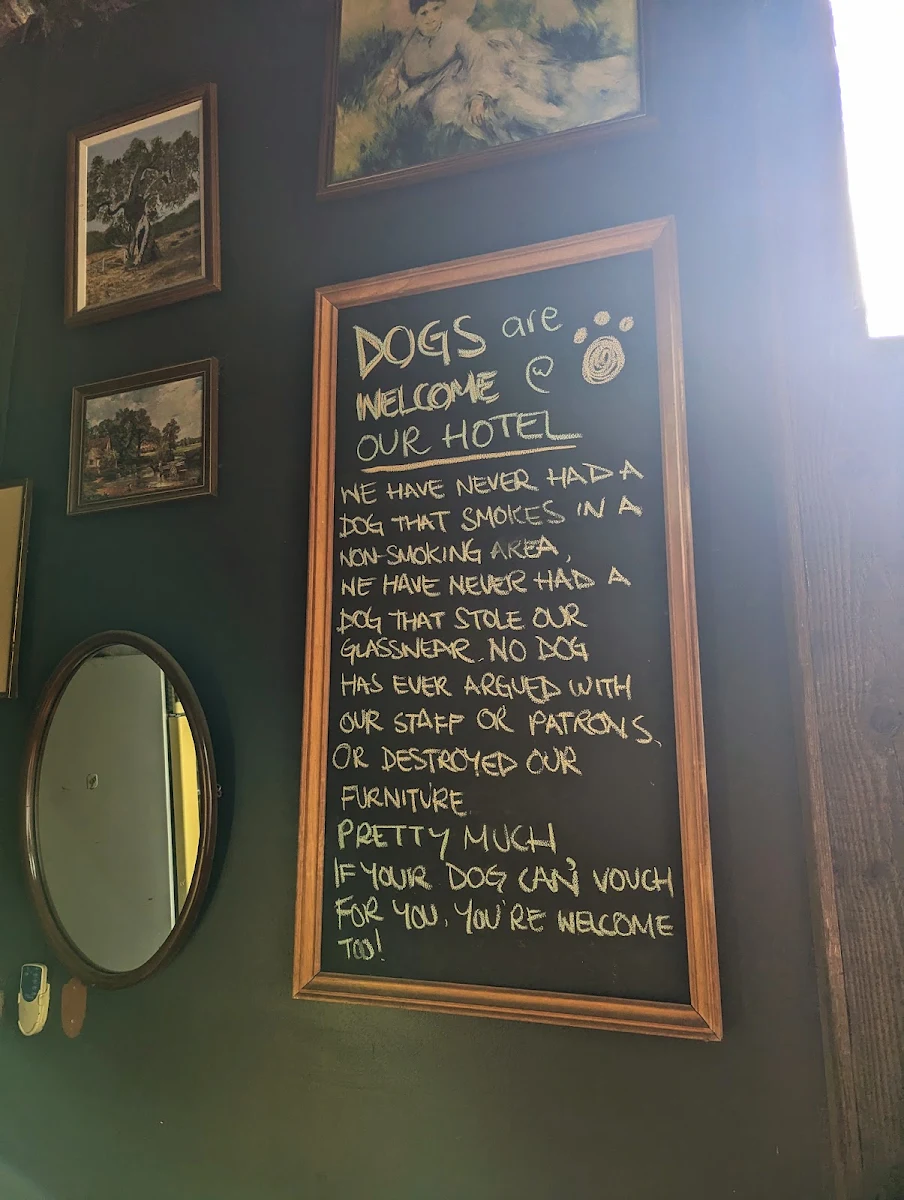 DOGS are
WELCOME @
OUR HOTEL
WE HAVE NEVER HAD A
DOG THAT SMOKES IN A
NON-SMOKING AREA,
WE HAVE NEVER HAD A
DOG THAT STOLE OUR
GLASSWEAR. NO DOG
HAS EVER ARGUED WITH
OUR STAFF OR PATRONS.
OR DESTROYED OUR
FURNITURE
PRETTY MUCH
IF YOUR DOG CAN VOUCH
FOR YOU, YOU'RE WELCOME
TOO!